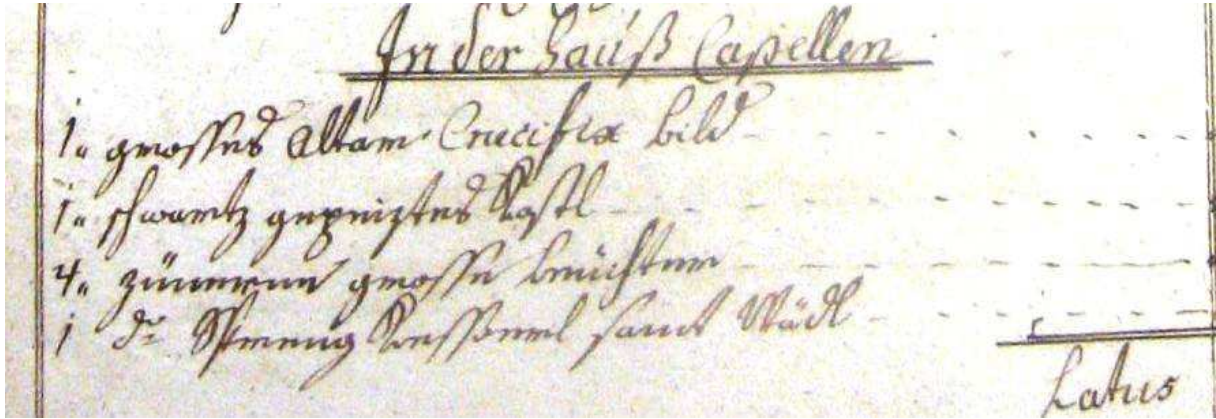 In der Hauß Capellen
1. grosses Altar Crucifix bild
1. schwartz gepeiztes Kastl
4. zünnerne grosse leüchter
1 do Spreng Kesserl samt Wädl
Latus